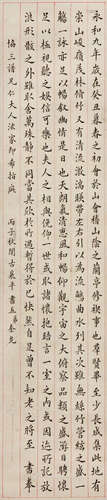 永和九年歲在癸丑暮春之初會於會稽山陰之蘭亭修禊事也羣賢畢至少長咸集此地有
崇山峻嶺茂林修竹又有清流激湍映帶左右引以為流觴曲水列坐其次雖無絲竹管絃之盛一
觴一詠亦足以暢敘幽情是日也天朗氣清惠風和暢仰觀宇宙之大俯察品類之盛所以遊目騁懷
足以極視聽之娛信可樂也夫人之相與俯仰一世或取諸懷抱悟言一室之內或因寄所託放
浪形骸之外雖取舍萬殊靜躁不同當其欣於所遇暫得於己快然自足曾不知老之將至 書奉
協三譜兄仁大人法家即希指疵 丙子秋 古襄平 五奎元